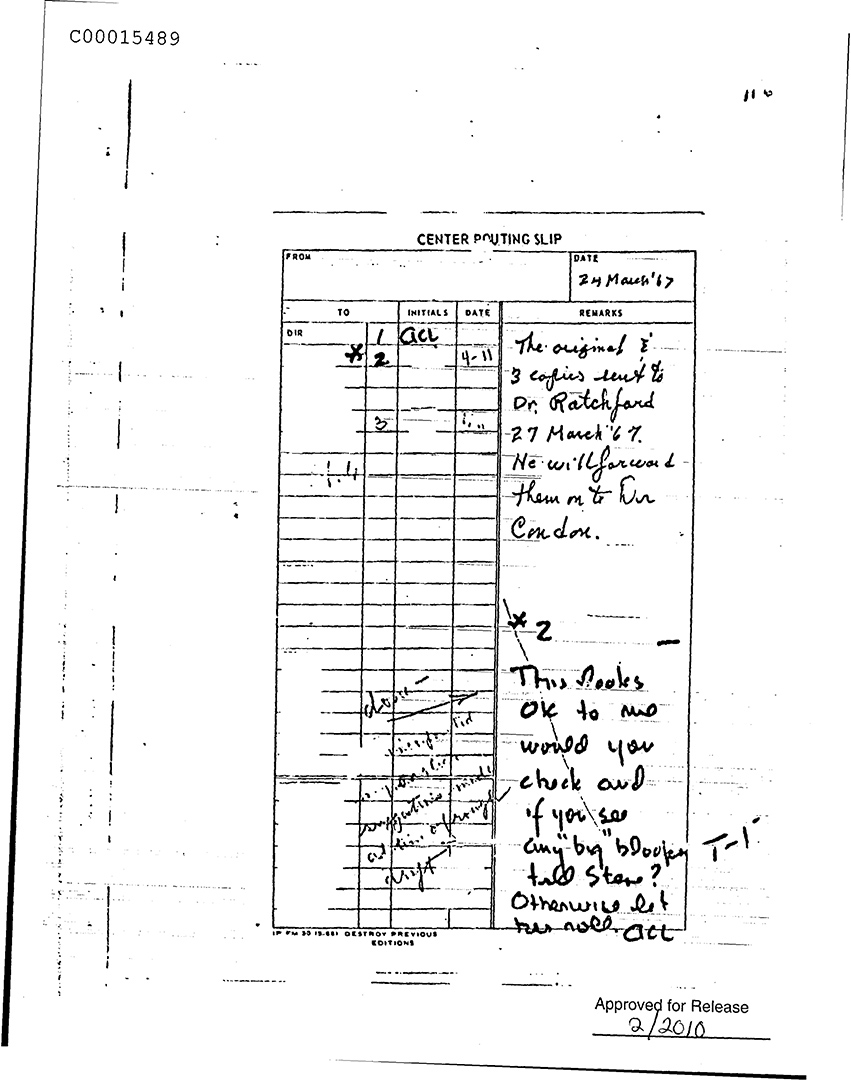 C00015489
116
CENTER ROUTING SLIP
FROM
DATE
24 March '67
TO
INITIALS
DATE
REMARKS
DIR
1
acl
* 2
4-11
3
" "
The original &
3 copies sent to
Dr. Ratchford
27 March '67.
He will forward
them on to Dr
Condon.
* 2
This looks
OK to me
would you
check and
if you see
any "big" blooper
tell Steve?
Otherwise let
her roll. acl
T-1
done -
suggestions made
at time of rough
draft
DESTROY PREVIOUS
EDITIONS
Approved for Release
2/2010